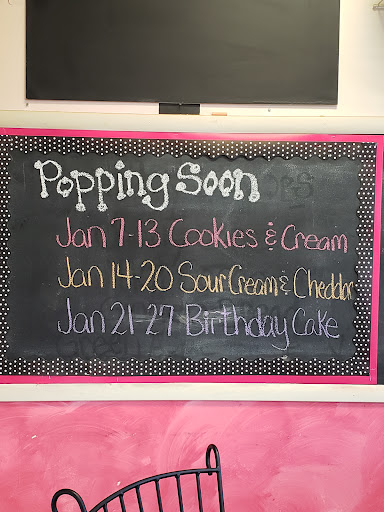 Popping Soon
Jan 7-13 Cookies & Cream
Jan 14-20 Sour Cream & Cheddar
Jan 21-27 Birthday Cake